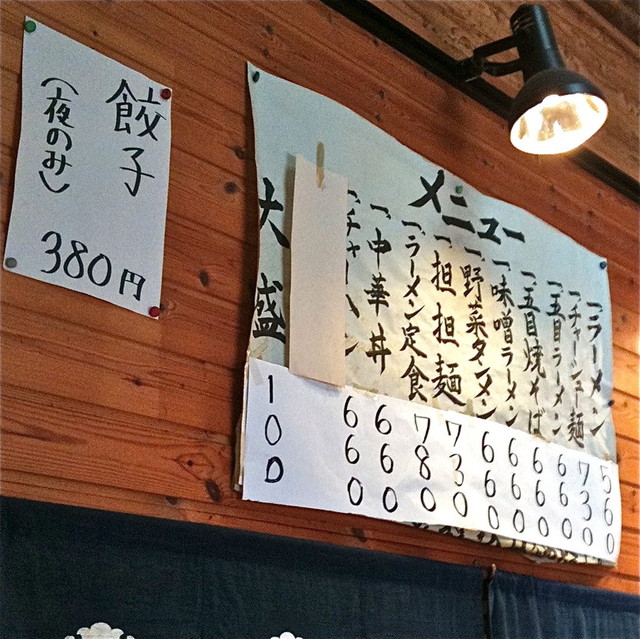 餃子
(夜のみ)
380円
メニュー
一、ラーメン 560
一、チャーシュー麺 730
一、五目ラーメン 660
一、五目焼そば 660
一、味噌ラーメン 660
一、野菜タンメン 660
一、担担麺 730
一、ラーメン定食 780
一、中華丼 660
一、チャーハン 660
大盛 100